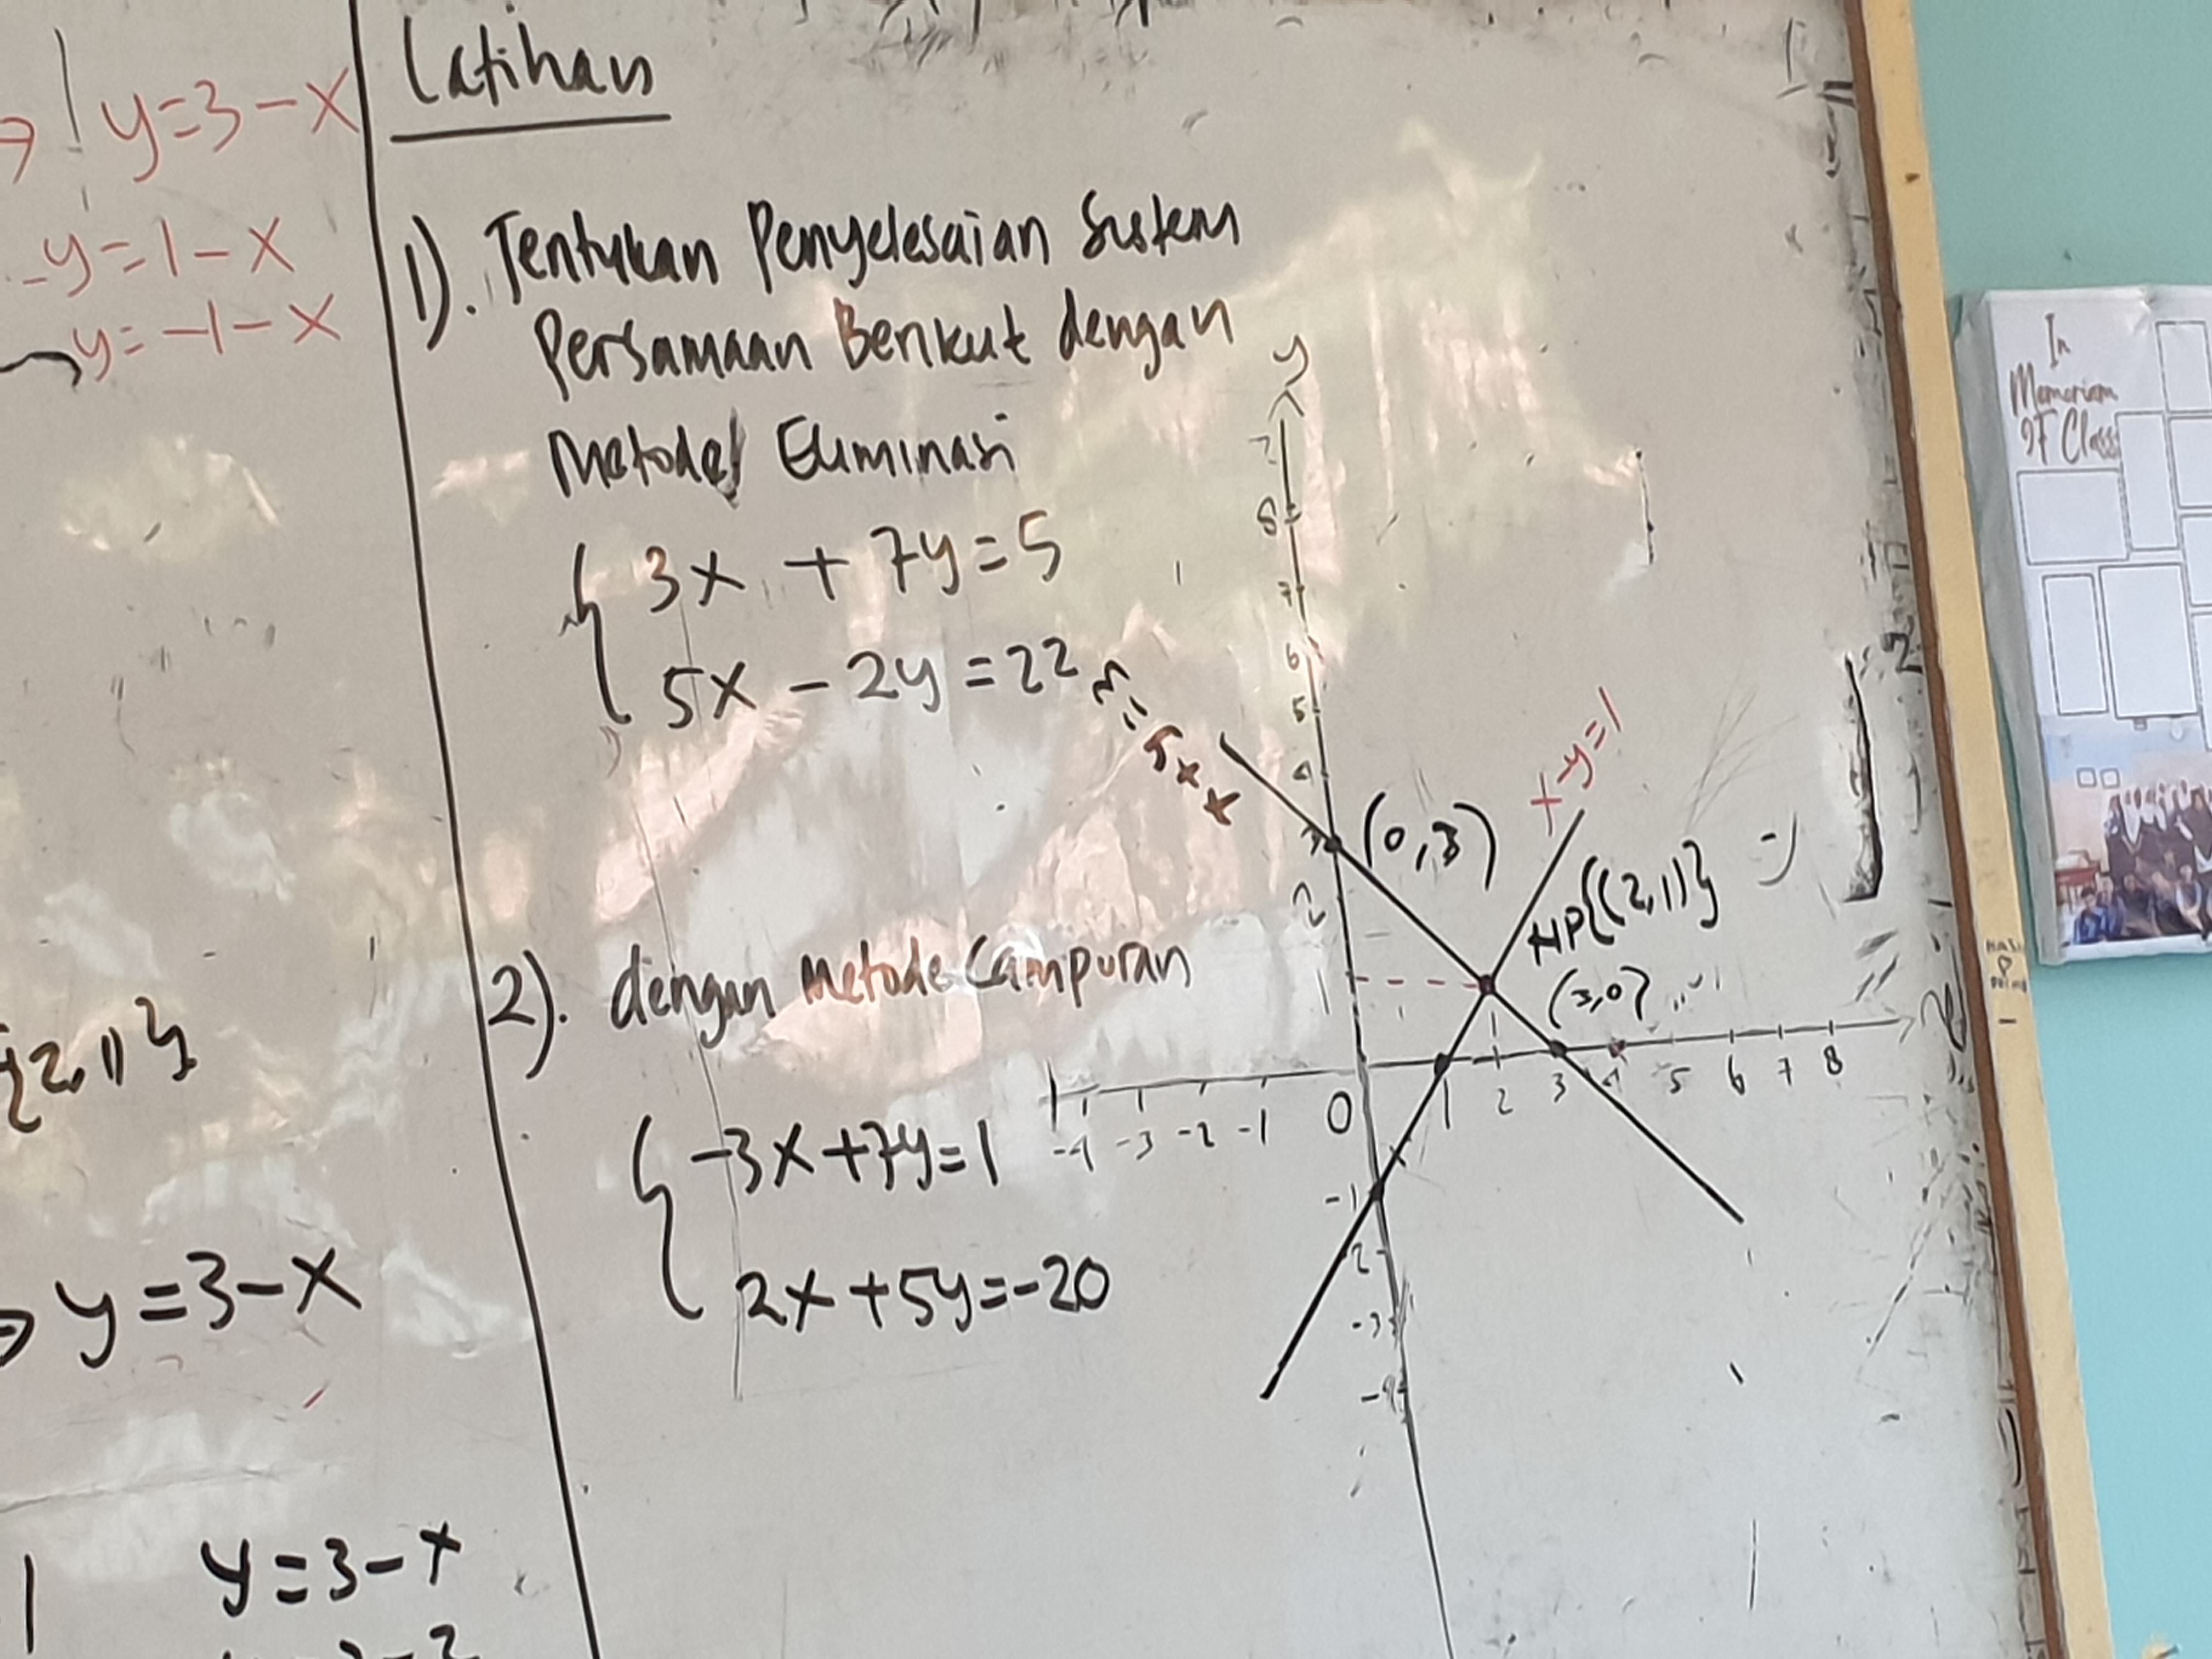 y=3-x
-y=1-x
y=-1-x
{2,1)}
y=3-x
y=3-x
Latihan
1). Tentukan Penyelesaian Sistem
Persamaan Berikut dengan
Metode Eliminasi
3x + 7y=5
5x - 2y=22
2). dengan Metode Campuran
-3x+7y=1
2x+5y=-20
y
8
7
6
5
4
3
2
1
x+y=3
(0,3)
x-y=1
HP{(2,1)}
(3,0)
-4 -3 -2 -1 0 1 2 3 4 5 6 7 8
-1
-2
-3
-4
In
Memoriam
9F Class